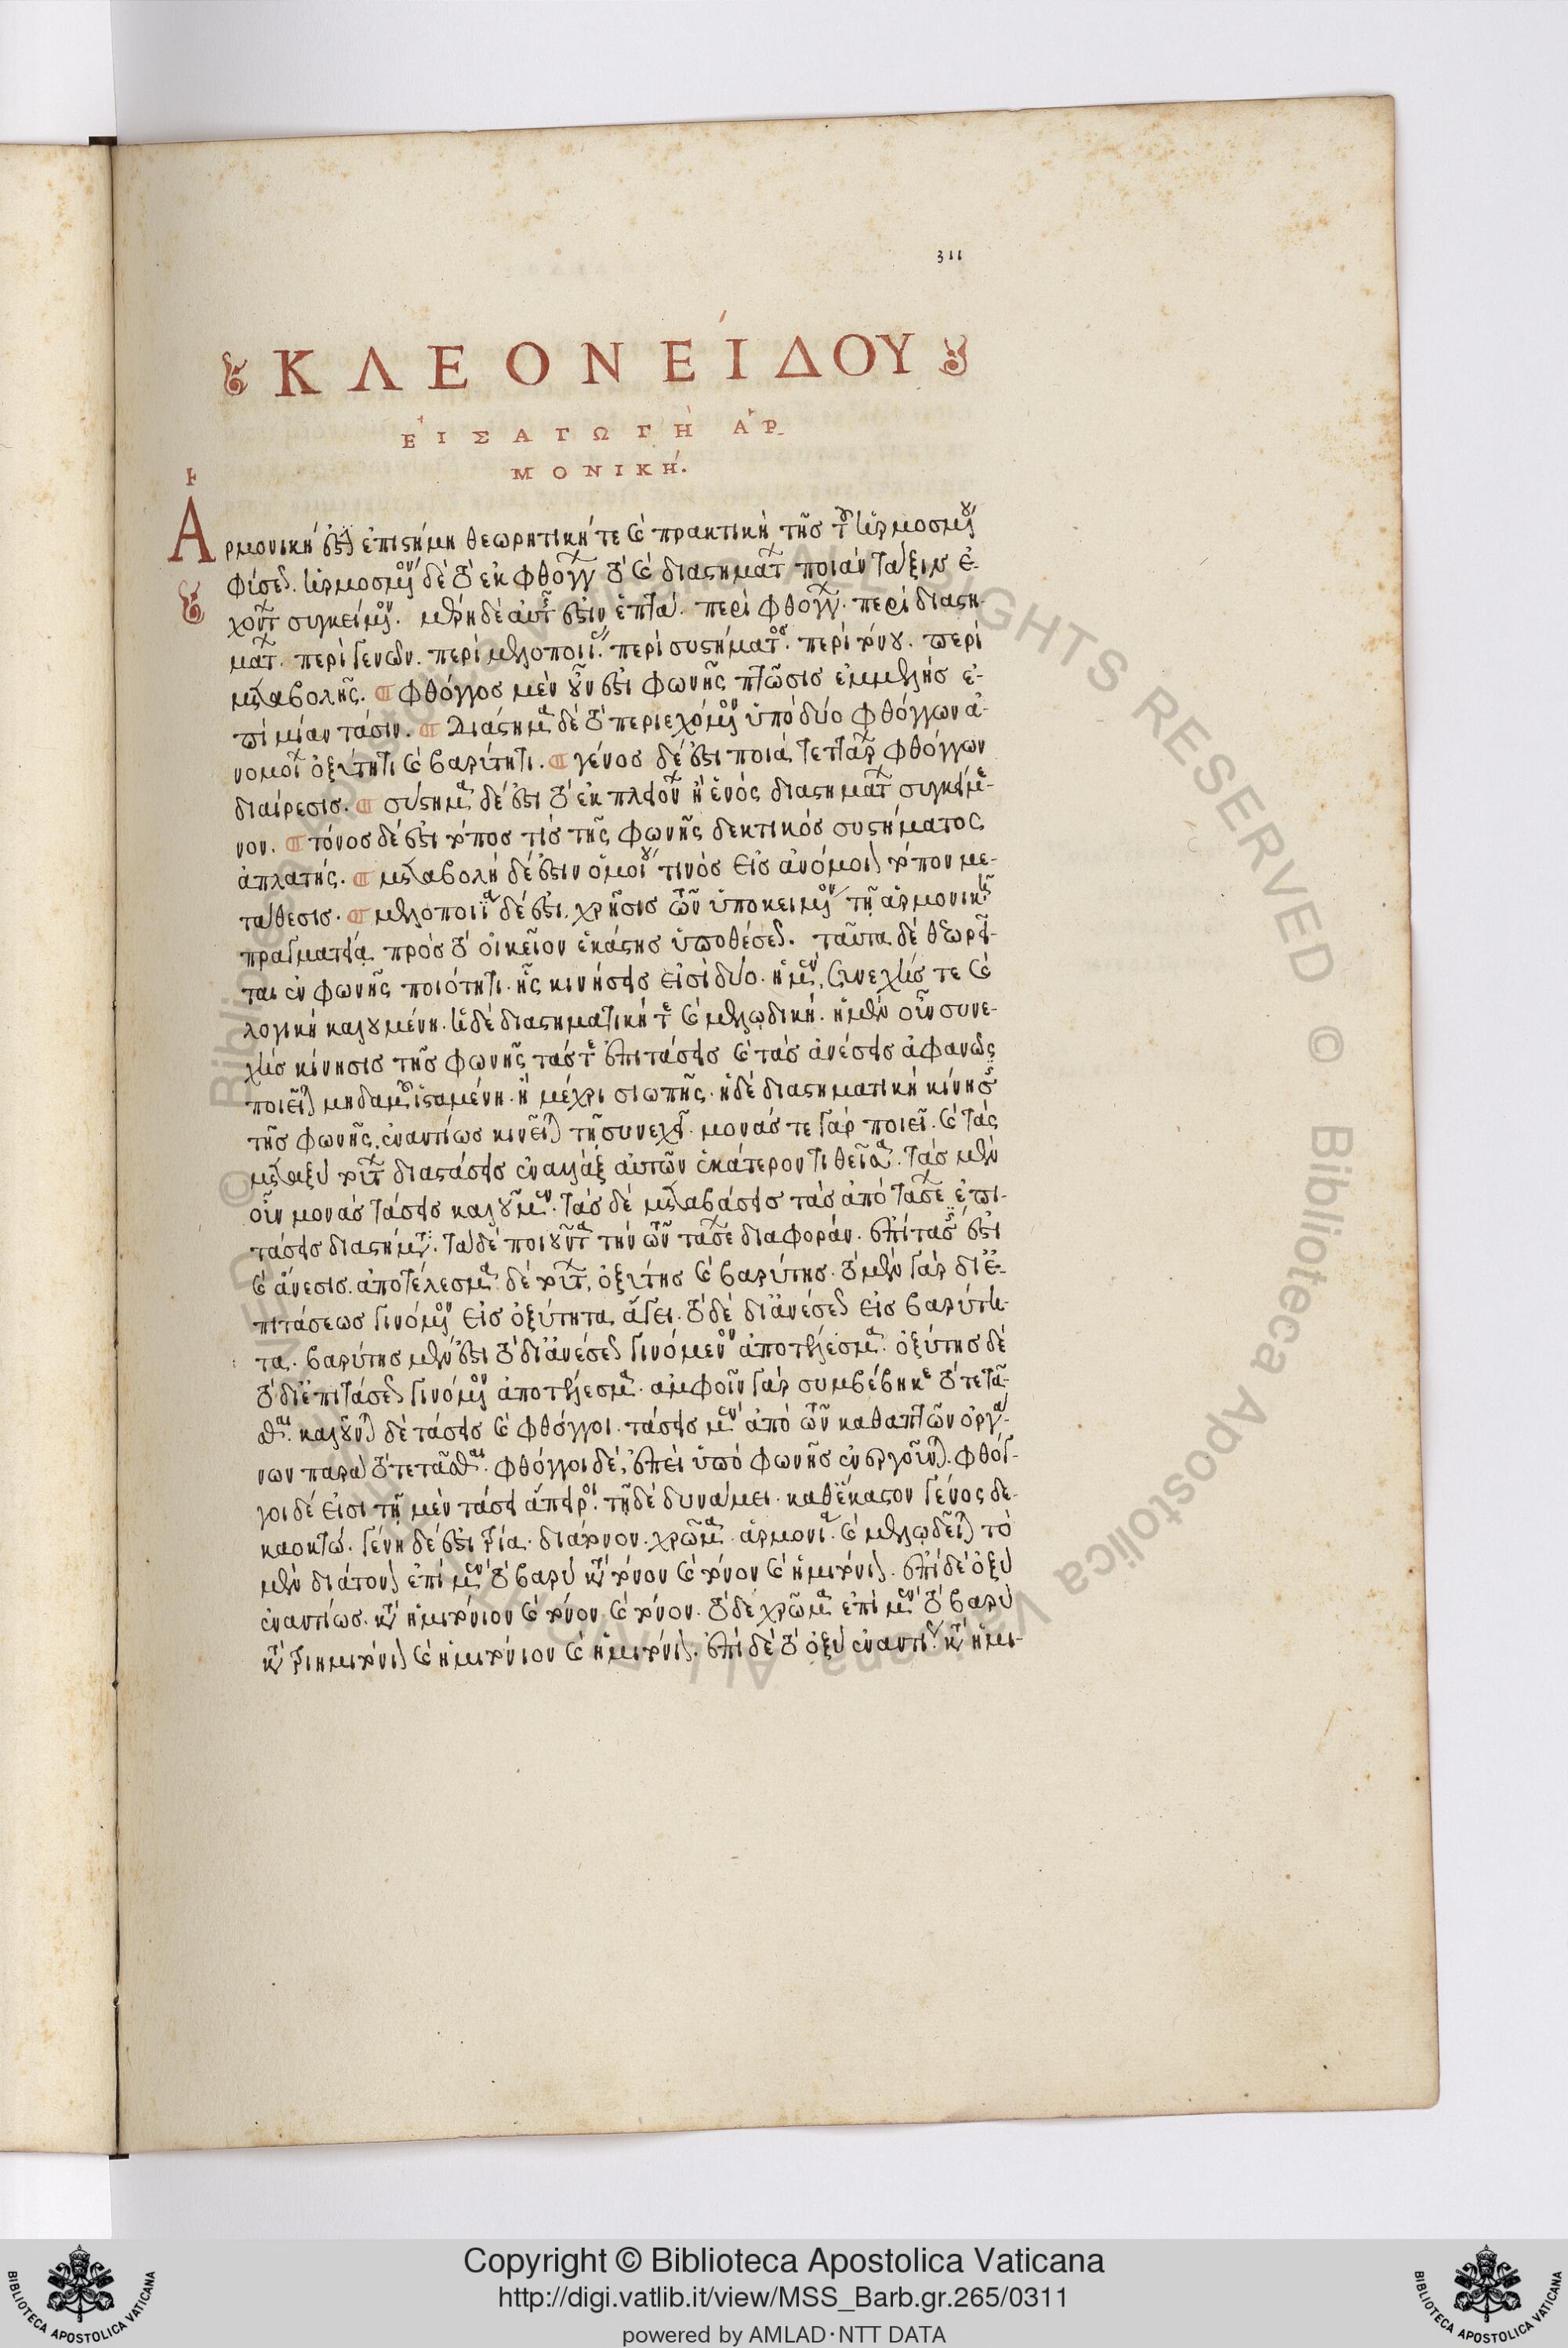 311
ΚΛΕΟΝΕΊΔΟΥ
ΕἸΣΑΓΩΓῊ ἉΡ-
ΜΟΝΙΚΉ.
Ἁρμονική ἐστιν ἐπιστήμη θεωρητική τε καὶ πρακτικὴ τῆς τοῦ ἡρμοσμένου
φύσεως. ἡρμοσμένον δὲ τὸ ἐκ φθόγγων τὸ καὶ διαστημάτων ποιὰν τάξιν ἐ-
χόντων συγκείμενον. μέρη δὲ αὐτῆς ἐστιν ἑπτά. περὶ φθόγγων. περὶ διαστη-
μάτων. περὶ γενῶν. περὶ μελοποιίας. περὶ συστήματος. περὶ τόνου. περὶ
μεταβολῆς. φθόγγος μὲν οὖν ἐστι φωνῆς πτῶσις ἐμμελής ἐ-
πὶ μίαν τάσιν. Διάστημα δὲ τὸ περιεχόμενον ὑπὸ δύο φθόγγων ἀ-
νομοίων ὀξύτητι καὶ βαρύτητι. γένος δέ ἐστι ποιὰ τεττάρων φθόγγων
διαίρεσις. σύστημα δέ ἐστι τὸ ἐκ πλειόνων ἢ ἑνὸς διαστημάτων συγκείμε-
νον. τόνος δέ ἐστι τόπος τὶς τῆς φωνῆς δεκτικὸς συστήματος
ἀπλατής. μεταβολὴ δέ ἐστιν ὁμοίου τινὸς εἰς ἀνόμοιον τόπον με-
τάθεσις. μελοποιία δέ ἐστι χρῆσις τῶν ὑποκειμένων τῇ ἁρμονικῇ
πραγματείᾳ πρὸς τὸ οἰκεῖον ἑκάστης ὑποθέσεως. ταῦτα δὲ θεωρεῖ-
ται ἐν φωνῆς ποιότητι. ἧς κινήσεις εἰσὶ δύο. ἡ μὲν, συνεχής τε καὶ
λογικὴ καλουμένη. ἡ δὲ διαστηματική τε καὶ μελῳδική. ἡ μὲν οὖν συνε-
χὴς κίνησις τῆς φωνῆς τάς τε ἐπιτάσεις καὶ τὰς ἀνέσεις ἀφανῶς
ποιεῖται μηδαμοῦ ἱσταμένη. ἢ μέχρι σιωπῆς. ἡ δὲ διαστηματικὴ κίνησις
τῆς φωνῆς, ἐναντίως κινεῖται τῇ συνεχεῖ. μονάς τε γὰρ ποιεῖ. καὶ τὰς
μεταξὺ τούτων διαστάσεις ἐναλλὰξ αὐτῶν ἑκάτερον τιθεῖσα. τὰς μὲν
οὖν μονὰς τάσεις καλοῦμεν. τὰς δὲ μεταβάσεις τὰς ἀπὸ τάσεων ἐπι-
τάσεις διαστήματα. τὰ δὲ ποιοῦντα τὴν τῶν τάσεων διαφοράν. ἐπίτασίς ἐστι
καὶ ἄνεσις. ἀποτέλεσμα δὲ τούτων, ὀξύτης καὶ βαρύτης. τὸ μὲν γὰρ δι' ἐ-
πιτάσεως γινόμενον εἰς ὀξύτητα ἄγει. τὸ δὲ δι' ἀνέσεως εἰς βαρύτη-
τα. βαρύτης μὲν ἐστι τὸ δι' ἀνέσεως γινόμενον ἀποτέλεσμα. ὀξύτης δὲ
τὸ δι' ἐπιτάσεως γινόμενον ἀποτέλεσμα. ἀμφοῖν γὰρ συμβέβηκε τὸ τετά-
σθαι. καλοῦνται δὲ τάσεις καὶ φθόγγοι. τάσεις μὲν ἀπὸ τῶν καθαπτῶν ὀργά-
νων παρὰ τὸ τετάσθαι. φθόγγοι δὲ, ἐπεὶ ὑπὸ φωνῆς ἐνεργοῦνται. φθόγ-
γοι δέ εἰσι τῇ μὲν τάσει ἄπειροι. τῇ δὲ δυνάμει. καθ' ἕκαστον γένος δε-
καοκτώ. γένη δέ ἐστι τρία. διάτονον. χρῶμα. ἁρμονία. καὶ μελῳδεῖται τὸ
μὲν διάτονον ἐπὶ μὲν τὸ βαρὺ κατὰ τόνον καὶ τόνον καὶ ἡμιτόνιον. ἐπὶ δὲ ὀξὺ
ἐναντίως. κατὰ ἡμιτόνιον καὶ τόνον καὶ τόνον. τὸ δὲ χρῶμα ἐπὶ μὲν τὸ βαρὺ
κατὰ τριημιτόνιον καὶ ἡμιτόνιον καὶ ἡμιτόνιον. ἐπὶ δὲ τὸ ὀξὺ ἐναντίως κατὰ ἡμι-
Copyright © Biblioteca Apostolica Vaticana
http://digi.vatlib.it/view/MSS_Barb.gr.265/0311
powered by AMLAD·NTT DATA